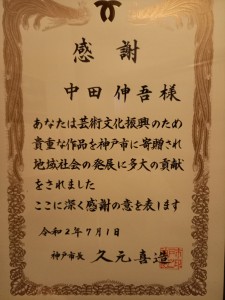 感謝
中田伸吾様
あなたは芸術文化振興のため
貴重な作品を神戸市に寄贈され
地域社会の発展に多大の貢献
をされました
ここに深く感謝の意を表します
令和2年7月1日
神戸市長 久元喜造